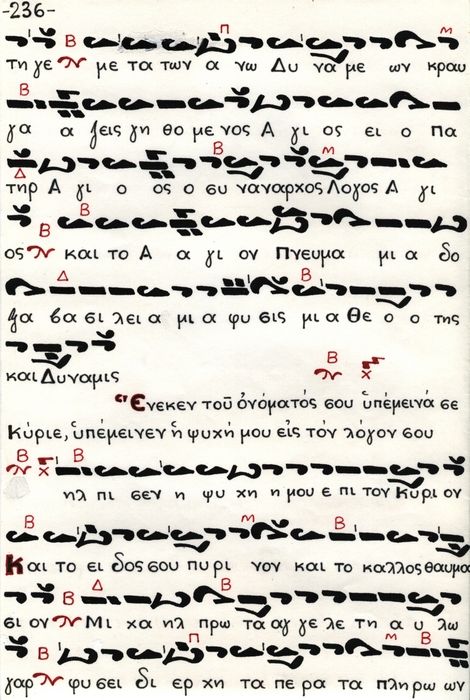 -236-
τη γε με τα των α νω Δυ να με ων κραυ
γα α ζεις γη θο με νος Α γι ος ει ο Πα
τηρ Α γι ο ος ο συ ναναρχος Λογος Α γι
ος και το Α α γι ον Πνευμα μι α δο
ξα βα σι λει α μι α φυ σις μι α Θε ο ο της
και Δυναμις
Ἕνεκεν τοῦ ὀνόματός σου ὑπέμεινά σε
Κύριε, ὑπέμεινεν ἡ ψυχή μου εἰς τὸν λόγον σου
ηλ πι σεν η ψυ χη η μου ε πι τον Κυρι ον
Και το ει δος σου πυρι νον και το καλλος θαυμα
σι ον Μι χα ηλ πρω τα αγ γε λε τη α υ λω
γαρ φυ σει δι ερ χη τα πε ρα τα πληρω ων